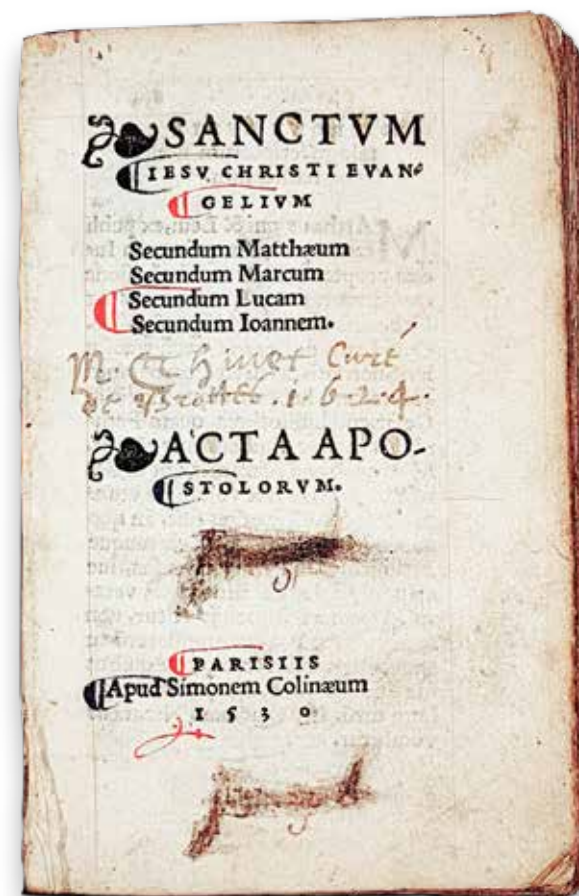 SANCTVM
IESV CHRISTI EVAN-
GELIVM
Secundum Matthæum
Secundum Marcum
Secundum Lucam
Secundum Ioannem.
Curé
de 1624.
ACTA APO-
STOLORVM.
PARISIIS
Apud Simonem Colinæum
1530